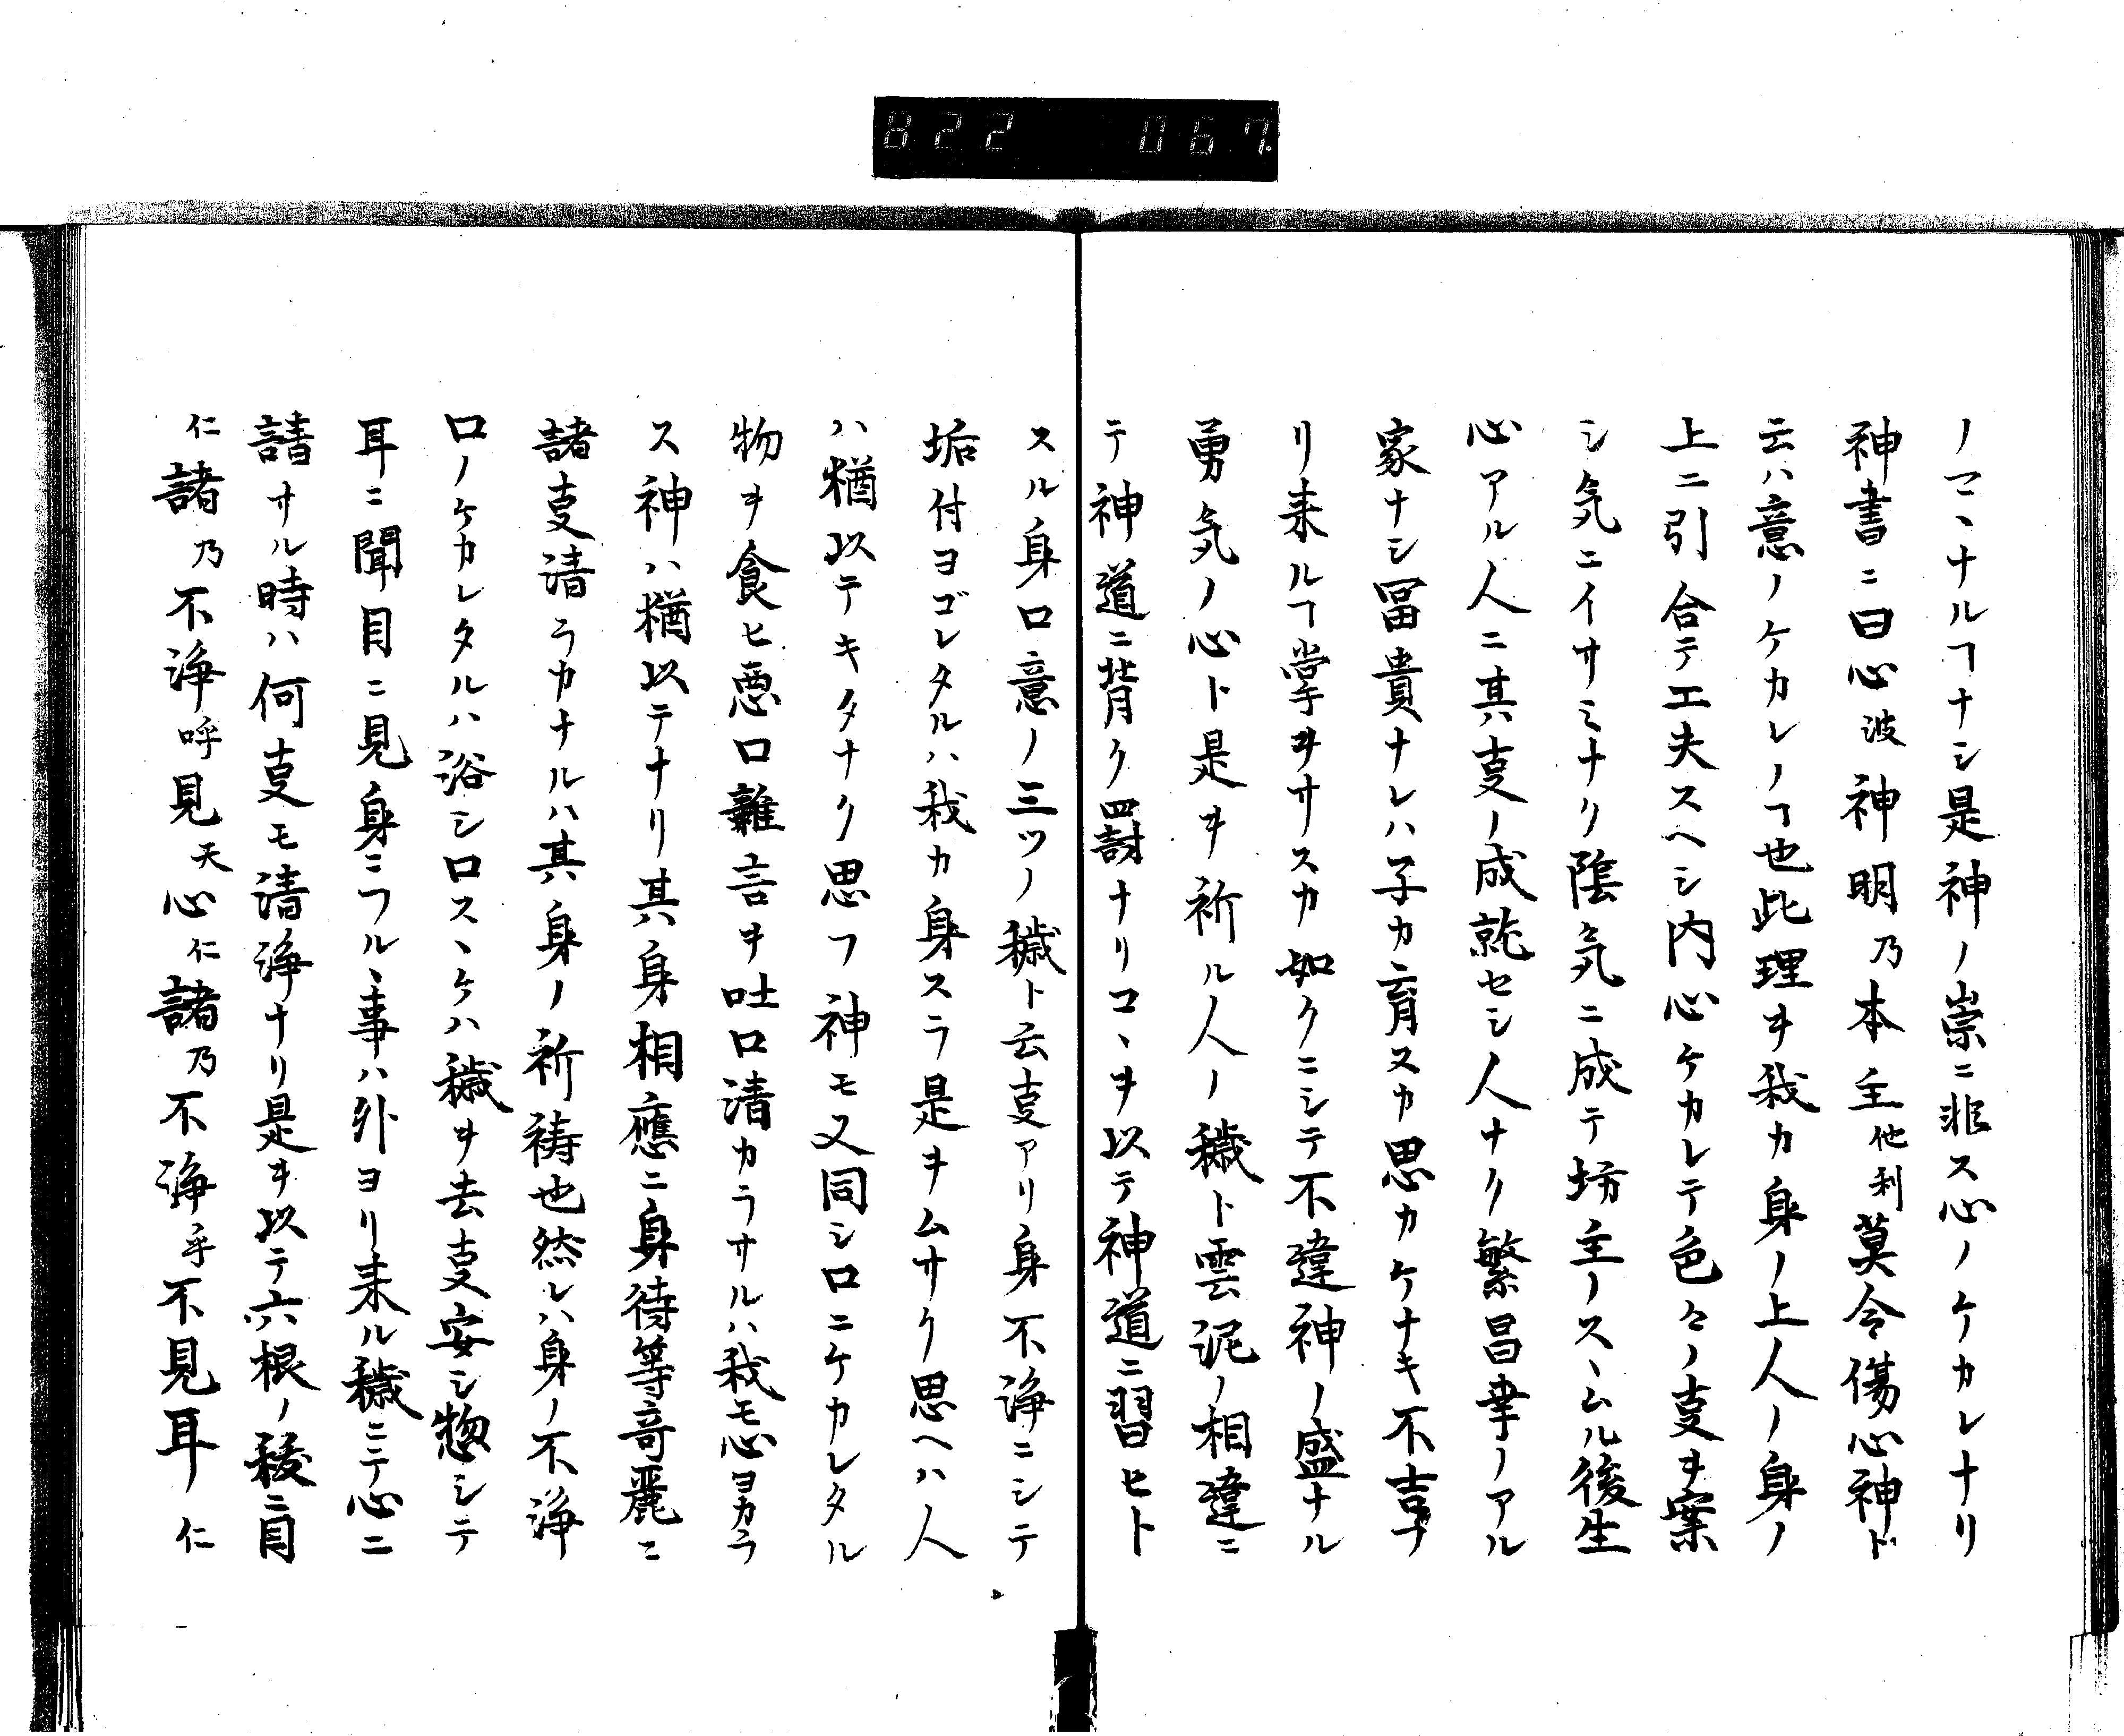 822 067
ノマヽナルヿナシ是神ノ崇ニ非ス心ノケカレナリ
神書ニ曰心波神明乃本主他利莫令傷心神ト
云ハ意ノケカレノヿ也此理ヲ我カ身ノ上人ノ身ノ
上ニ引合テ工夫スヘシ内心ケカレテ色々ノ叓ヲ案
シ気ニイサミナク陰気ニ成テ坊主ノスヽムル後生
心アル人ニ其叓ノ成就セシ人ナク繁昌幸ノアル
家ナシ冨貴ナレハ子カ育スカ思カケナキ不吉フ
リ来ルヿ掌ヲサスカ如クニシテ不違神ノ盛ナル
勇気ノ心ト是ヲ祈ル人ノ穢ト雲泥ノ相違ニ
テ神道ニ背ク罰ナリコヽヲ以テ神道ニ習セト
スル身口意ノ三ツノ穢ト云叓アリ身不浄ニシテ
垢付ヨゴレタルハ我カ身スラ是ヲムサク思ヘハ人
ハ猶以テキタナク思フ神モ又同シ口ニケカレタル
物ヲ食ヒ悪口雜言ヲ吐口清カラサルハ我モ心ヨカラ
ス神ハ猶以テナリ其身相應ニ身待等奇麗ニ
諸叓清ラカナルハ其身ノ祈祷也然レハ身ノ不浄
口ノケカレタルハ浴シ口スヽケハ穢ヲ去叓安シ惣シテ
耳ニ聞目ニ見身ニフルヽ事ハ外ヨリ来ル穢ニテ心ニ
請サル時ハ何叓モ清浄ナリ是ヲ以テ六根ノ祓ニ目
仁諸乃不浄呼見天心仁諸乃不浄乎不見耳仁